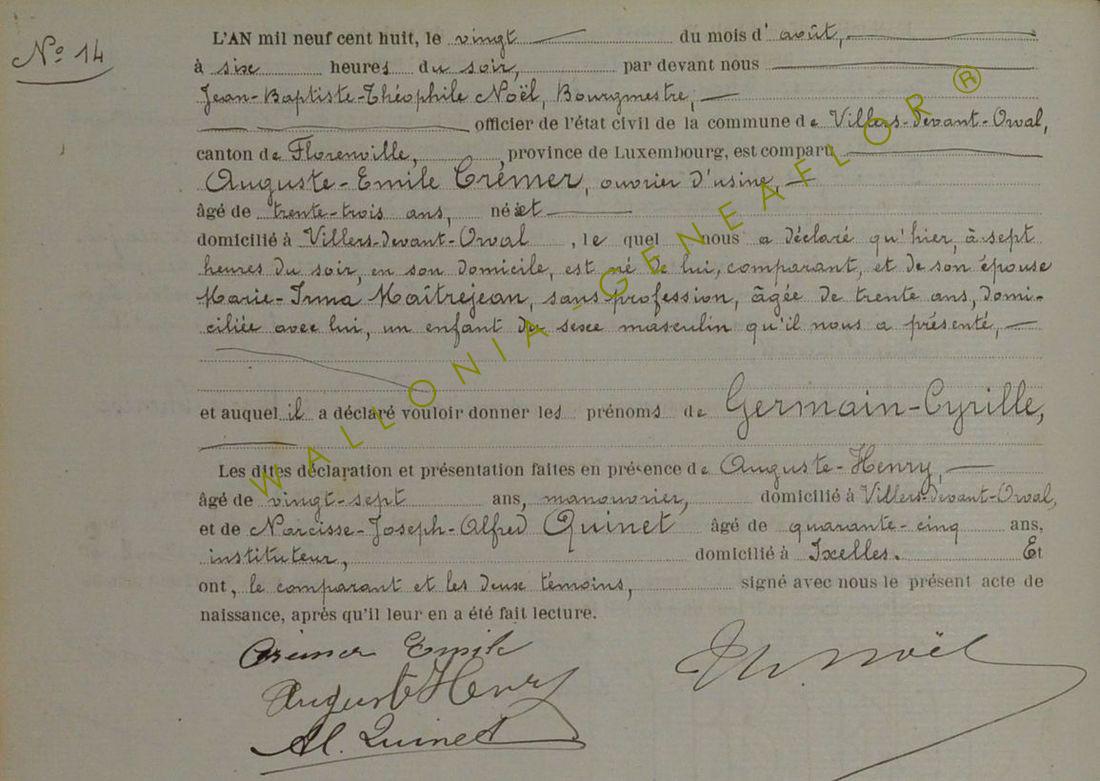 Nº 14
L'AN mil neuf cent huit, le vingt du mois d'août,
à six heures du soir, par devant nous
Jean-Baptiste-Théophile Noël, Bourgmestre,
officier de l'état civil de la commune de Villers-devant-Orval,
canton de Florenville, , province de Luxembourg, est comparu
Auguste-Emile Crémer, ouvrier d'usine,
âgé de trente-trois ans, né et
domicilié à Villers-devant-Orval , le quel nous a déclaré qu'hier, à sept
heures du soir, en son domicile, est né de lui, comparant, et de son épouse
Marie-Irma Maîtrejean, sans profession, âgée de trente ans, domi-
ciliée avec lui, un enfant du sexe masculin qu'il nous a présenté,
et auquel il a déclaré vouloir donner les prénoms de Germain-Cyrille,
Les dites déclaration et présentation faites en présence de Auguste-Henry,
âgé de vingt-sept ans, manouvrier, domicilié à Villers-devant-Orval,
et de Narcisse-Joseph-Alfred Quinet âgé de quarante-cinq ans,
instituteur, domicilié à Ixelles. Et
ont, le comparant et les deux témoins, signé avec nous le présent acte de
naissance, après qu'il leur en a été fait lecture.
Crémer Emile
Auguste Henry
Al. Quinet
Th. Noël
WALLONIA-GENEAFLOR ®